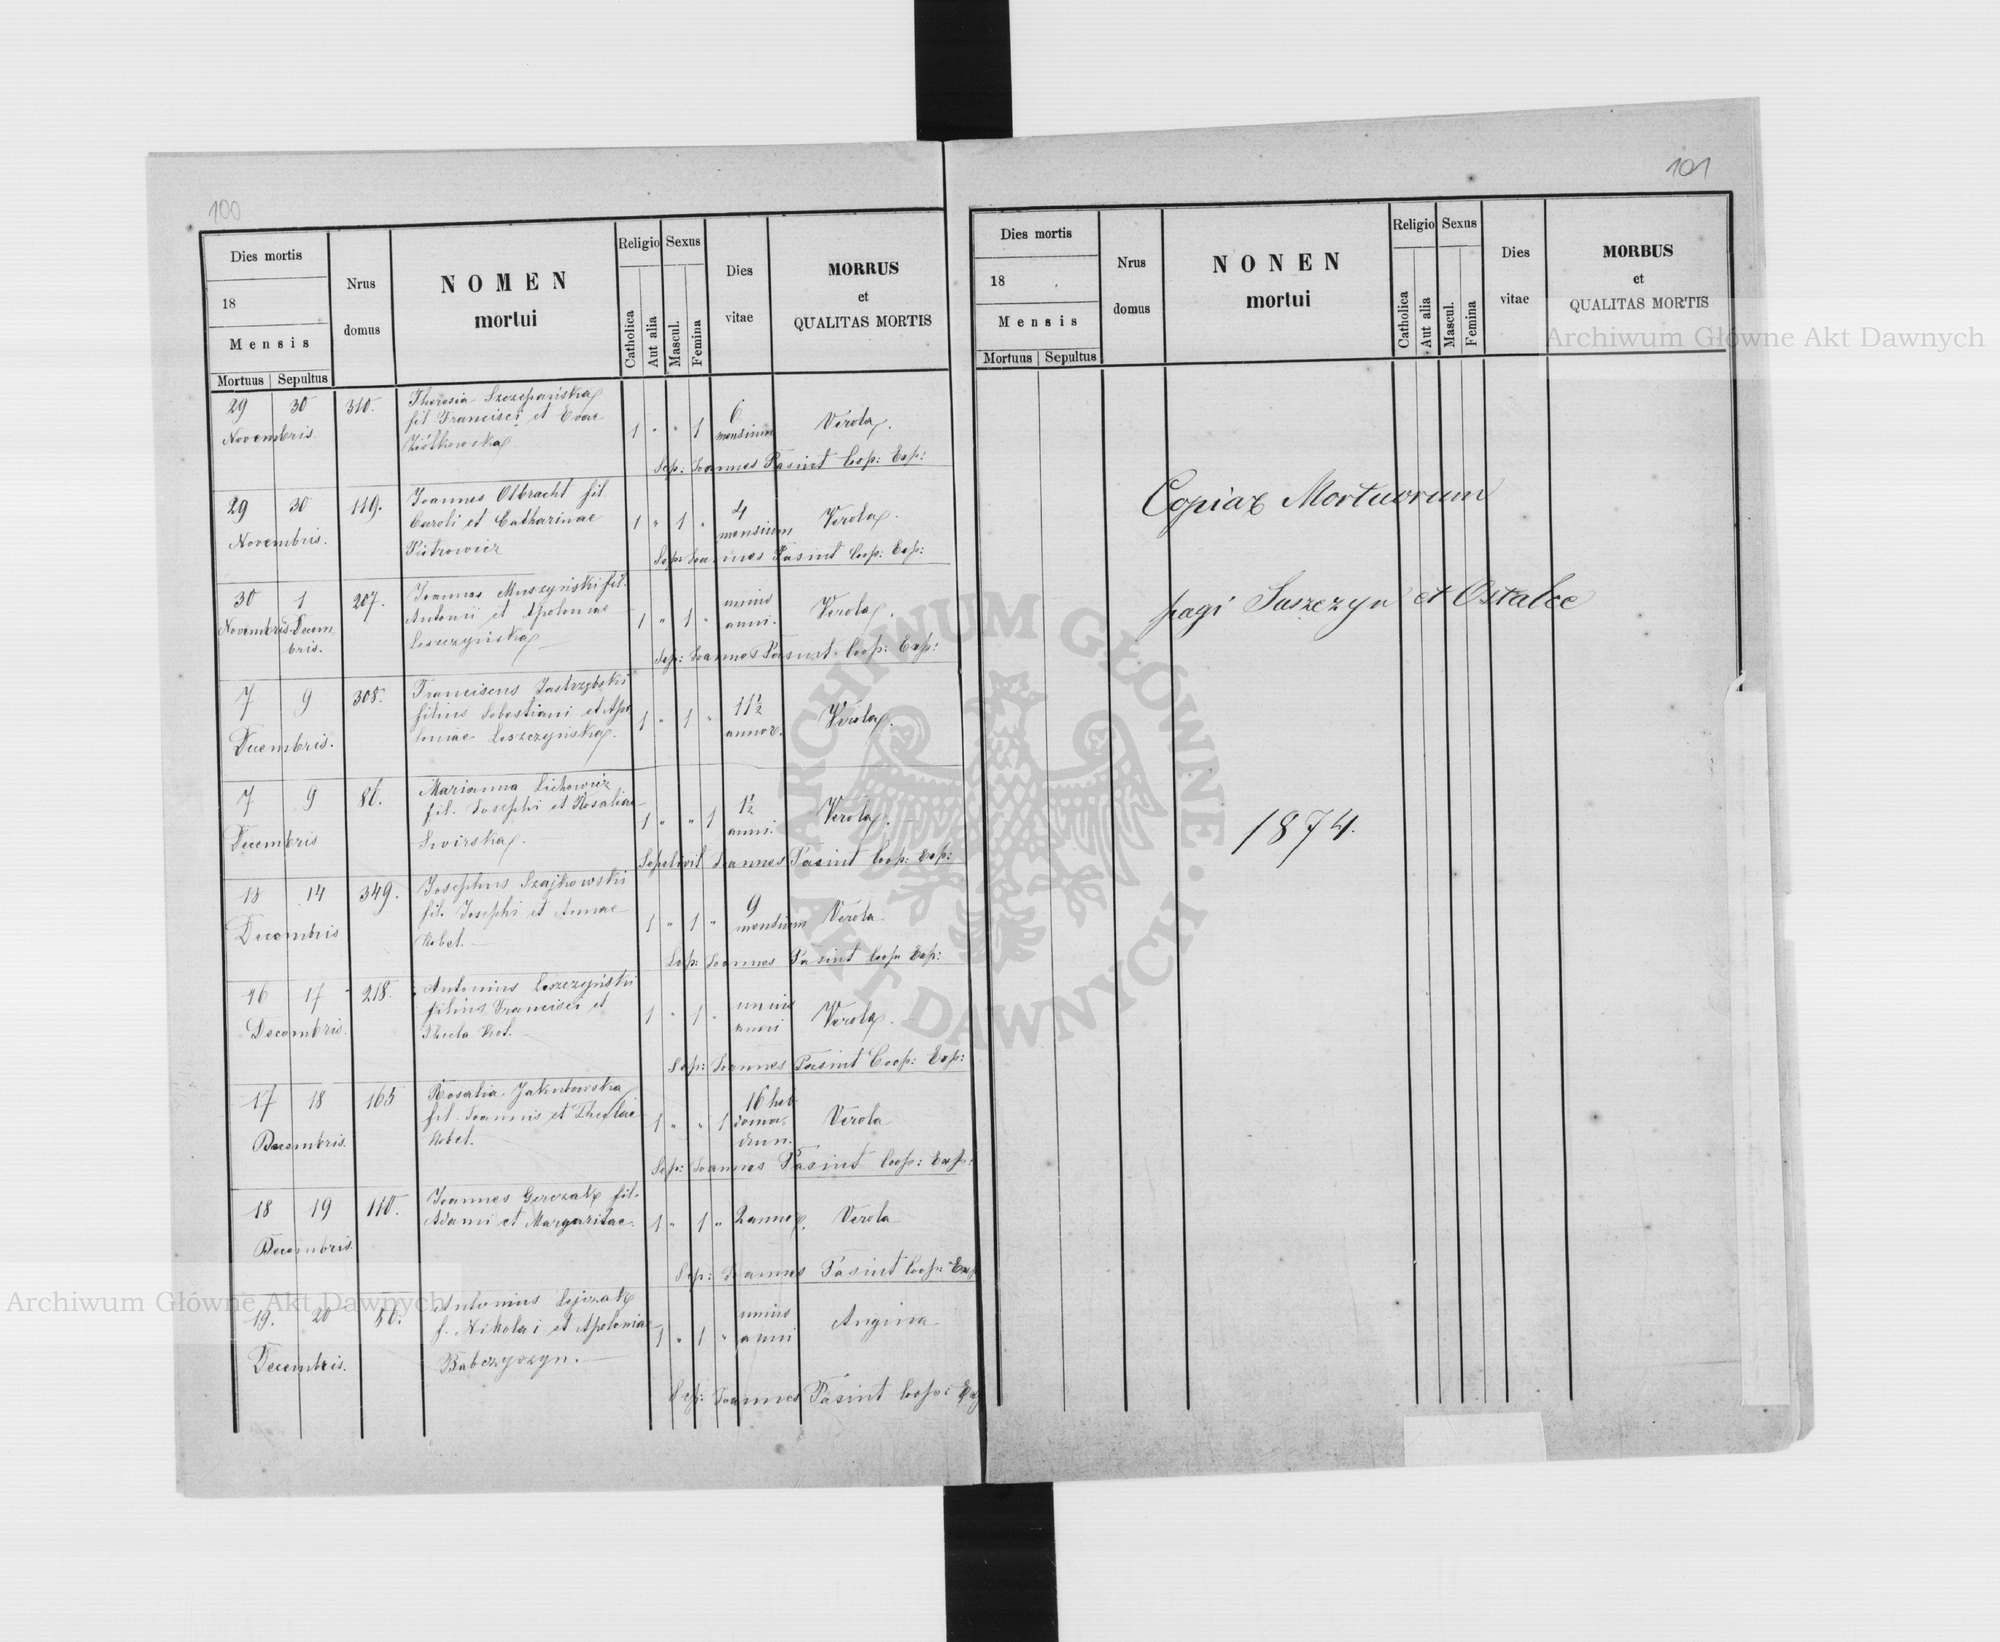 100
Dies mortis
18
Mensis
Mortuus | Sepultus
Nrus
domus
NOMEN
mortui
Religio
Catholica
Aut alia
Sexus
Mascul.
Femina
Dies
vitae
MORRUS
et
QUALITAS MORTIS
29 30 310. Theresia Szczepańska
Novembris fil Francisci et Evae
Ziółkowska 1 " " 1 6 mensium Verola.
Sep: Joannes Pasint Coop: Exp:
29 30 119. Joannes Olbracht fil.
Novembris. Caroli et Catharinae
Piotrowicz 1 " 1 " 4 mensium Verola.
Sep: Joannes Pasint Coop: Exp:
30 1 207. Joannes Muszyński fil.
Novembris Decem Antonii et Apoloniae
bris. Leszczyńska 1 " 1 " unius anni. Verola.
Sep: Joannes Pasint Coop: Exp:
7 9 308. Franciscus Jastrzębski
Decembris. filius Sebastiani et Apo
loniae Leszczyńska. 1 " 1 " 1 1/2 annor. Verola.
7 9 86. Marianna Lichowicz
Decembris fil. Josephi et Rosaliae
Swirska. 1 " " 1 1/2 anni. Verola.
Sepelivit Joannes Pasint Coop: Exp:
13 14 349. Josephus Szajkowski
Decembris fil. Josephi et Annae
Kobel. 1 " 1 " 9 mensium Verola.
Sep: Joannes Pasint Coop Exp:
16 17 218. Antonius Leszczyński
Decembris. filius Francisci et
Thecla Kot. 1 " 1 " unius anni Verola.
Sep: Joannes Pasint Coop: Exp:
17 18 165 Rosalia Jakubowska
Decembris. fil. Joannis et Theclae
Kobel. 1 " " 1 16 heb
doma-
dum. Verola
Sep: Joannes Pasint Coop: Exp:
18 19 110. Joannes Gerczak fil.
Decembris. Adami et Margaritae. 1 " 1 " 2 annor. Verola
Sep: Joannes Pasint Coop: Exp
19. 20 50. Antonius
Decembris. f. Nikolai et Apoloniae
Babczyszyn. 1 " 1 " unius anni Angina
Sep: Joannes Pasint Coop: Exp
101
Dies mortis
18
Mensis
Mortuus | Sepultus
Nrus
domus
NONEN
mortui
Religio
Catholica
Aut alia
Sexus
Mascul.
Femina
Dies
vitae
MORBUS
et
QUALITAS MORTIS
Copiae Mortuorum
pagi Suszczyn et Ostalce
1874.
Archiwum Główne Akt Dawnych
Archiwum Główne Akt Dawnych
ARCHIWUM GŁÓWNE · AKT DAWNYCH ·